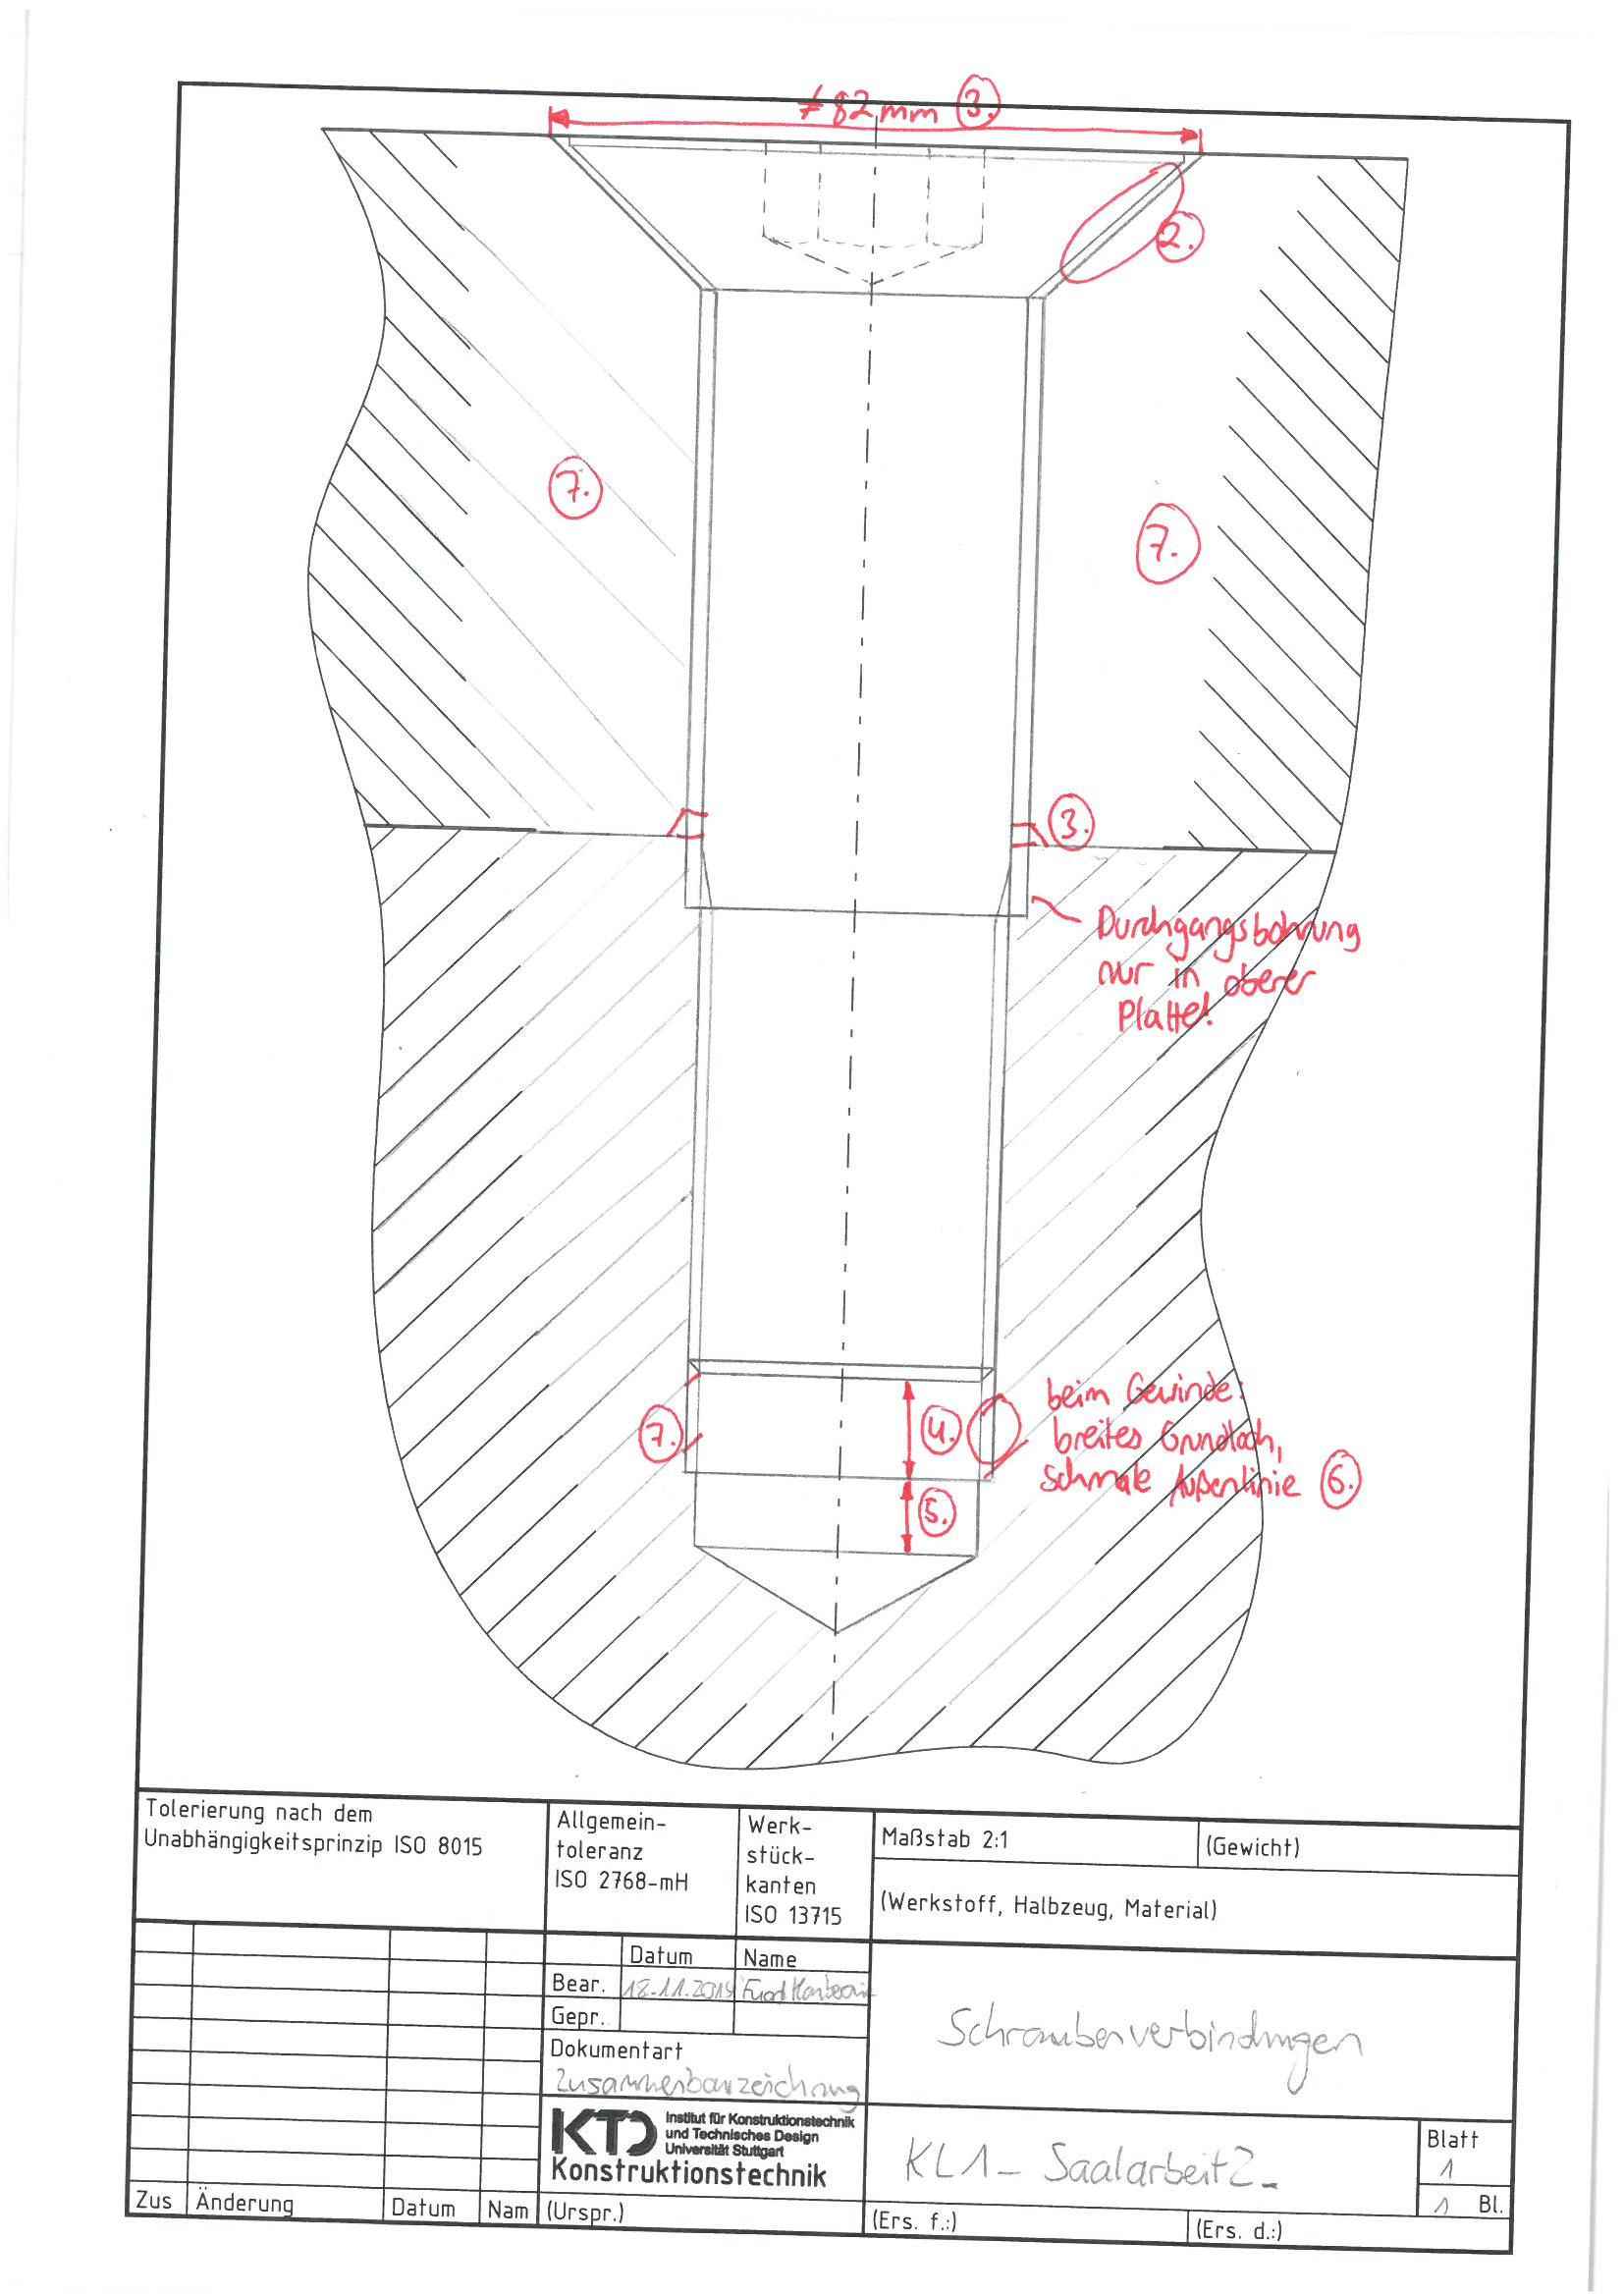 ≠ 82 mm 3.
2.
7.
7.
3.
Durchgangsbohrung
nur in oberer
Platte!
beim Gewinde:
breites Grundloch,
schmale Außenlinie 6.
7.
4.
5.
Tolerierung nach dem
Unabhängigkeitsprinzip ISO 8015
Allgemein-
toleranz
ISO 2768-mH
Werk-
stück-
kanten
ISO 13715
Maßstab 2:1
(Gewicht)
(Werkstoff, Halbzeug, Material)
Datum Name
Bear. 18.11.2019 Fuad
Gepr.
Dokumentart
Zusammenbauzeichnung
Schraubenverbindungen
KTD Institut für Konstruktionstechnik
und Technisches Design
Universität Stuttgart
Konstruktionstechnik
KL1 - Saalarbeit 2 -
Blatt
1
1 Bl.
Zus Änderung Datum Nam (Urspr.) (Ers. f.:) (Ers. d.:)